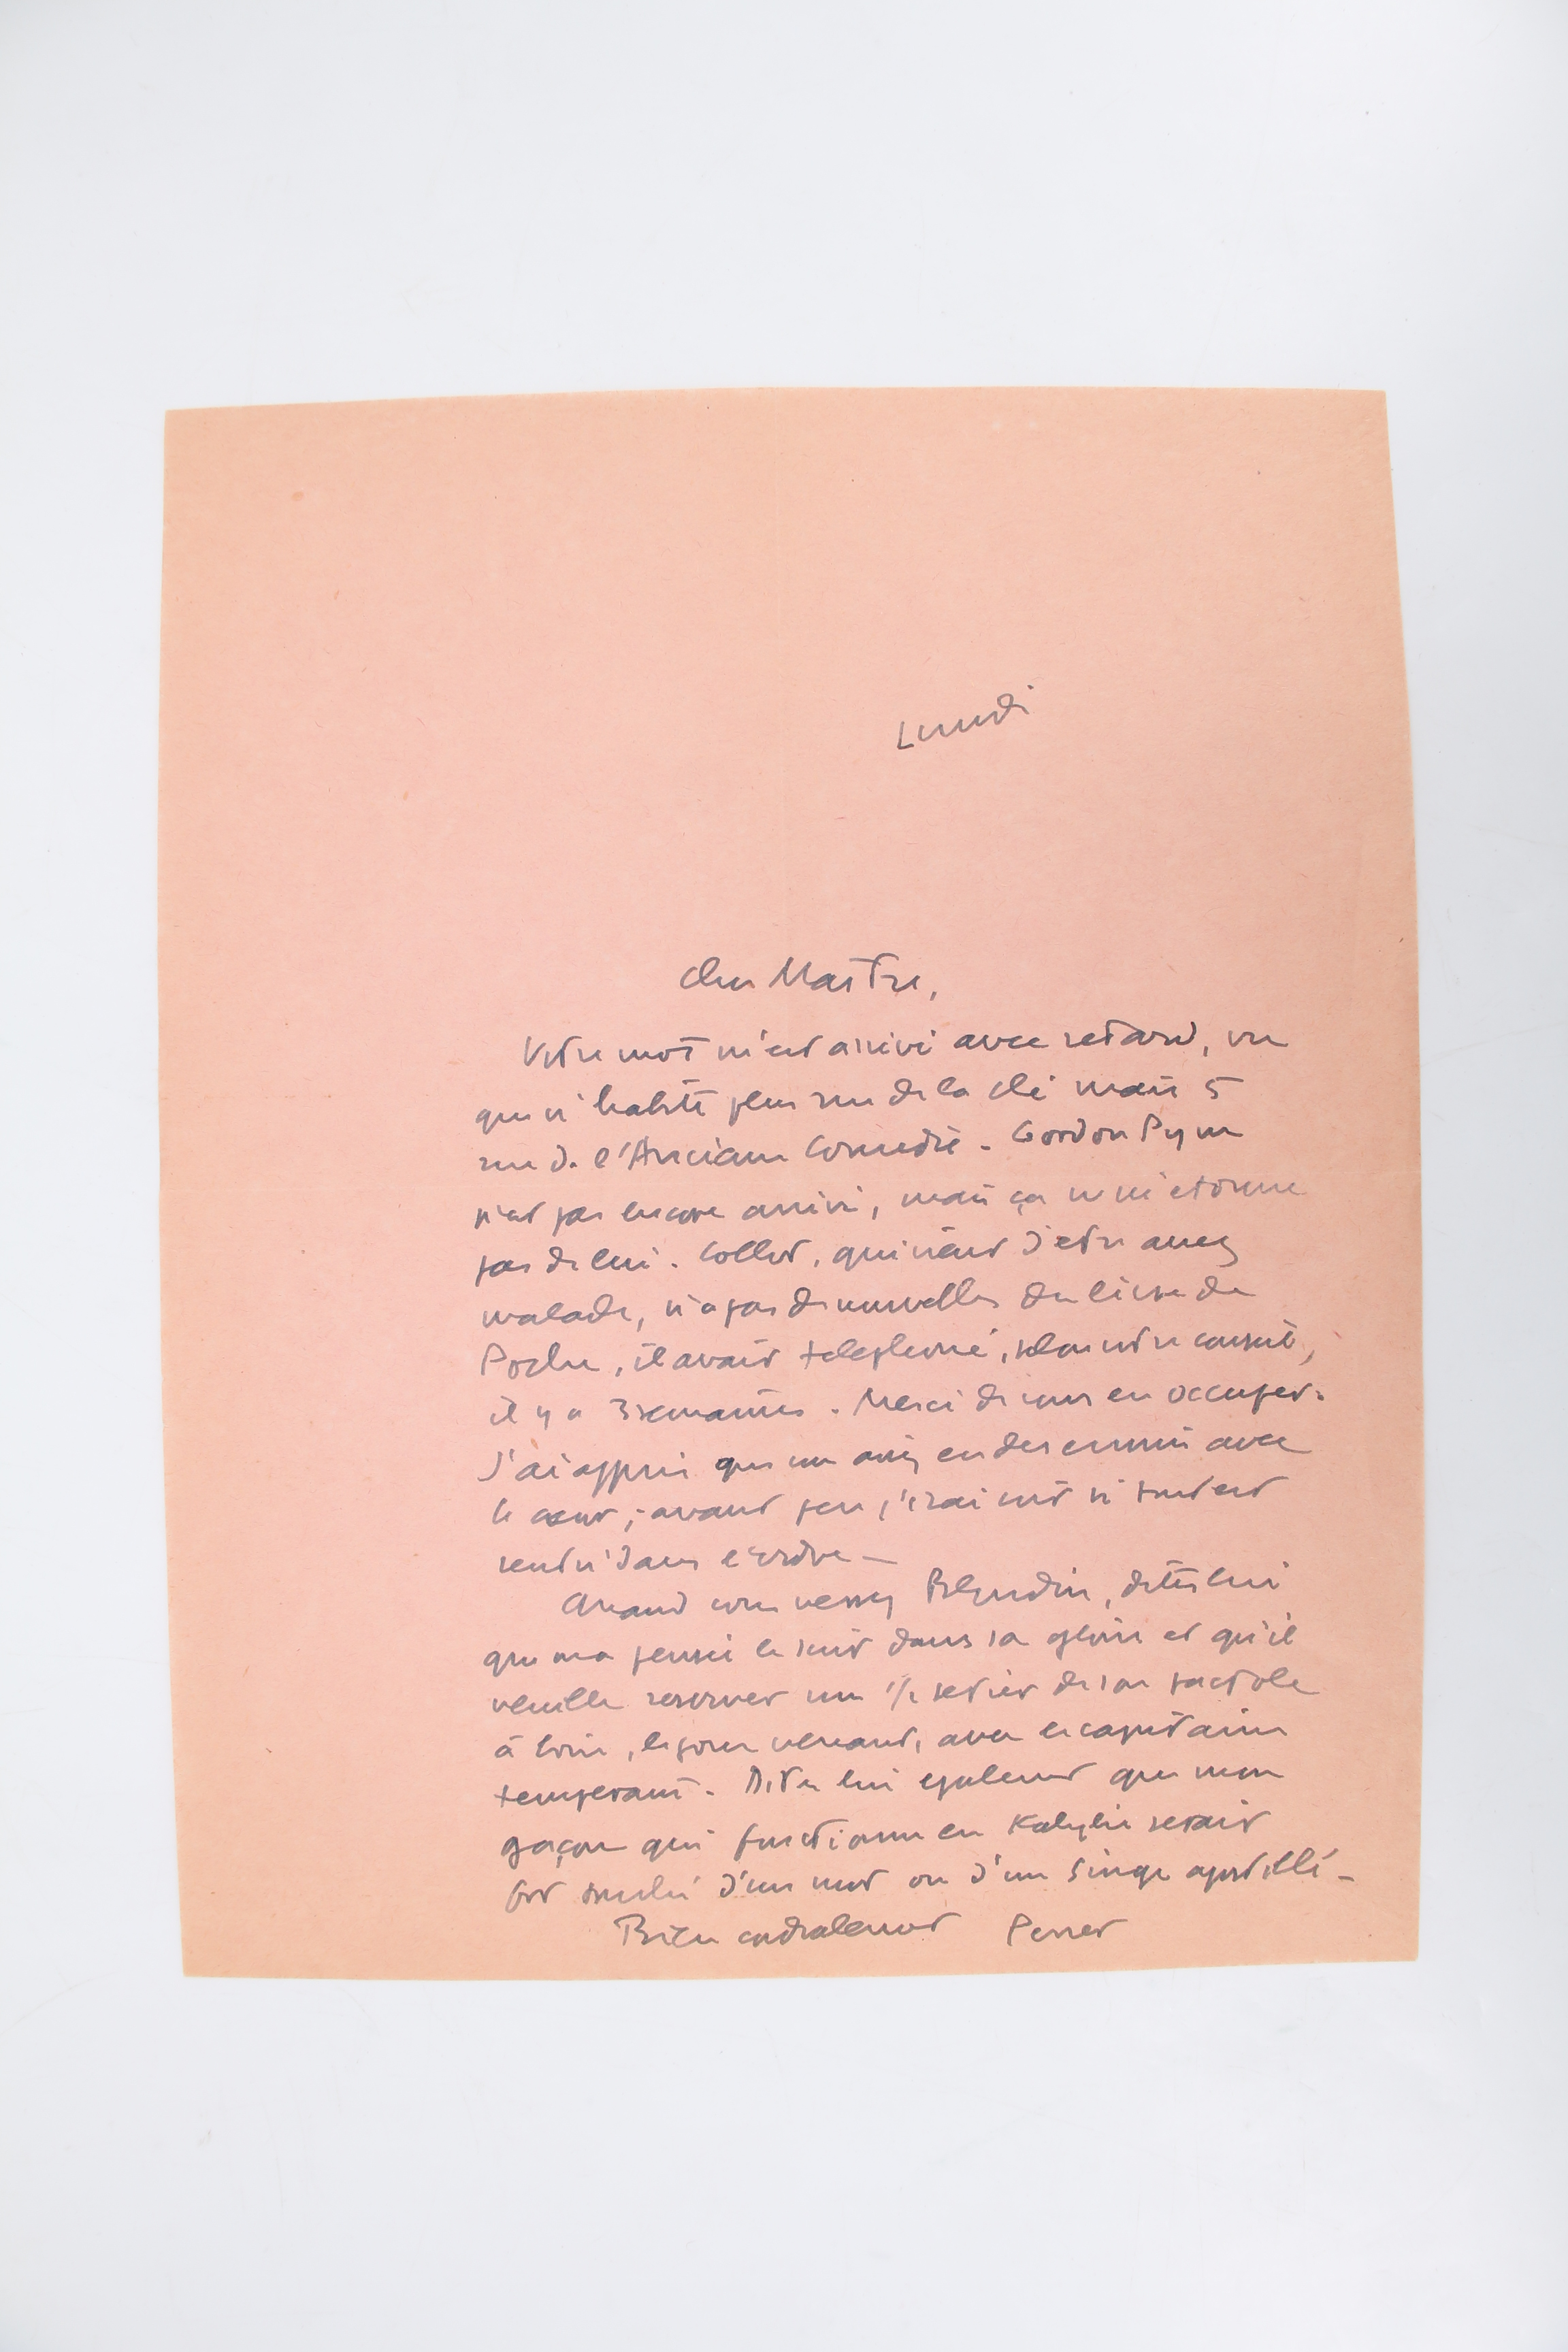 Lundi
Cher Maître,
Votre mot m'est arrivé avec retard, vu
que n'habite plus rue de la Clé mais 5
rue de l'Ancienne Comédie. Gordon Pym
n'est pas encore arrivé, mais ça ne m'etonne
pas de lui. Collet, qui vient d'etre assez
malade, n'a pas de nouvelles du livre de
Poche, il avait telephoné, selon votre conseil,
il y a 3 semaines. Merci de vous en occuper.
J'ai appris que vous aviez eu des ennuis avec
le cœur; avant peu j'irai voir si tout est
rentré dans l'ordre —
Quand vous verrez Blondin, dites lui
que ma pensée le suit dans sa gloire et qu'il
veuille reserver un 1/2 setier de son pactole
à boire, le jour venant, avec le capitaine
temperant. Dites lui egalement que mon
garçon qui fonctionne en Kabylie serait
fort d'un mot ou d'un Singe apostillé —
Bien cordialement Perret